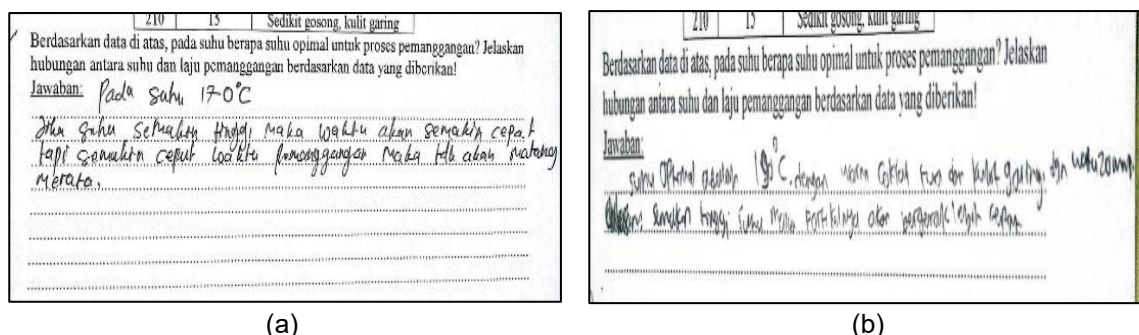 210 15 Sedikit gosong, kulit garing
Berdasarkan data di atas, pada suhu berapa suhu opimal untuk proses pemanggangan? Jelaskan
hubungan antara suhu dan laju pemanggangan berdasarkan data yang diberikan!
Jawaban: Pada suhu 170°C
Jika suhu semakin tinggi maka waktu akan semakin cepat
tapi semakin cepat waktu pemanggangan maka tdk akan matang
merata.
(a)
210 15 Sedikit gosong, kulit garing
Berdasarkan data di atas, pada suhu berapa suhu opimal untuk proses pemanggangan? Jelaskan
hubungan antara suhu dan laju pemanggangan berdasarkan data yang diberikan!
Jawaban:
suhu optimal adalah 190°C. dengan warna coklat tua dan kulit garing, dgn waktu 20
semakin tinggi suhu maka partikelnya akan bergerak lebih cepat
(b)